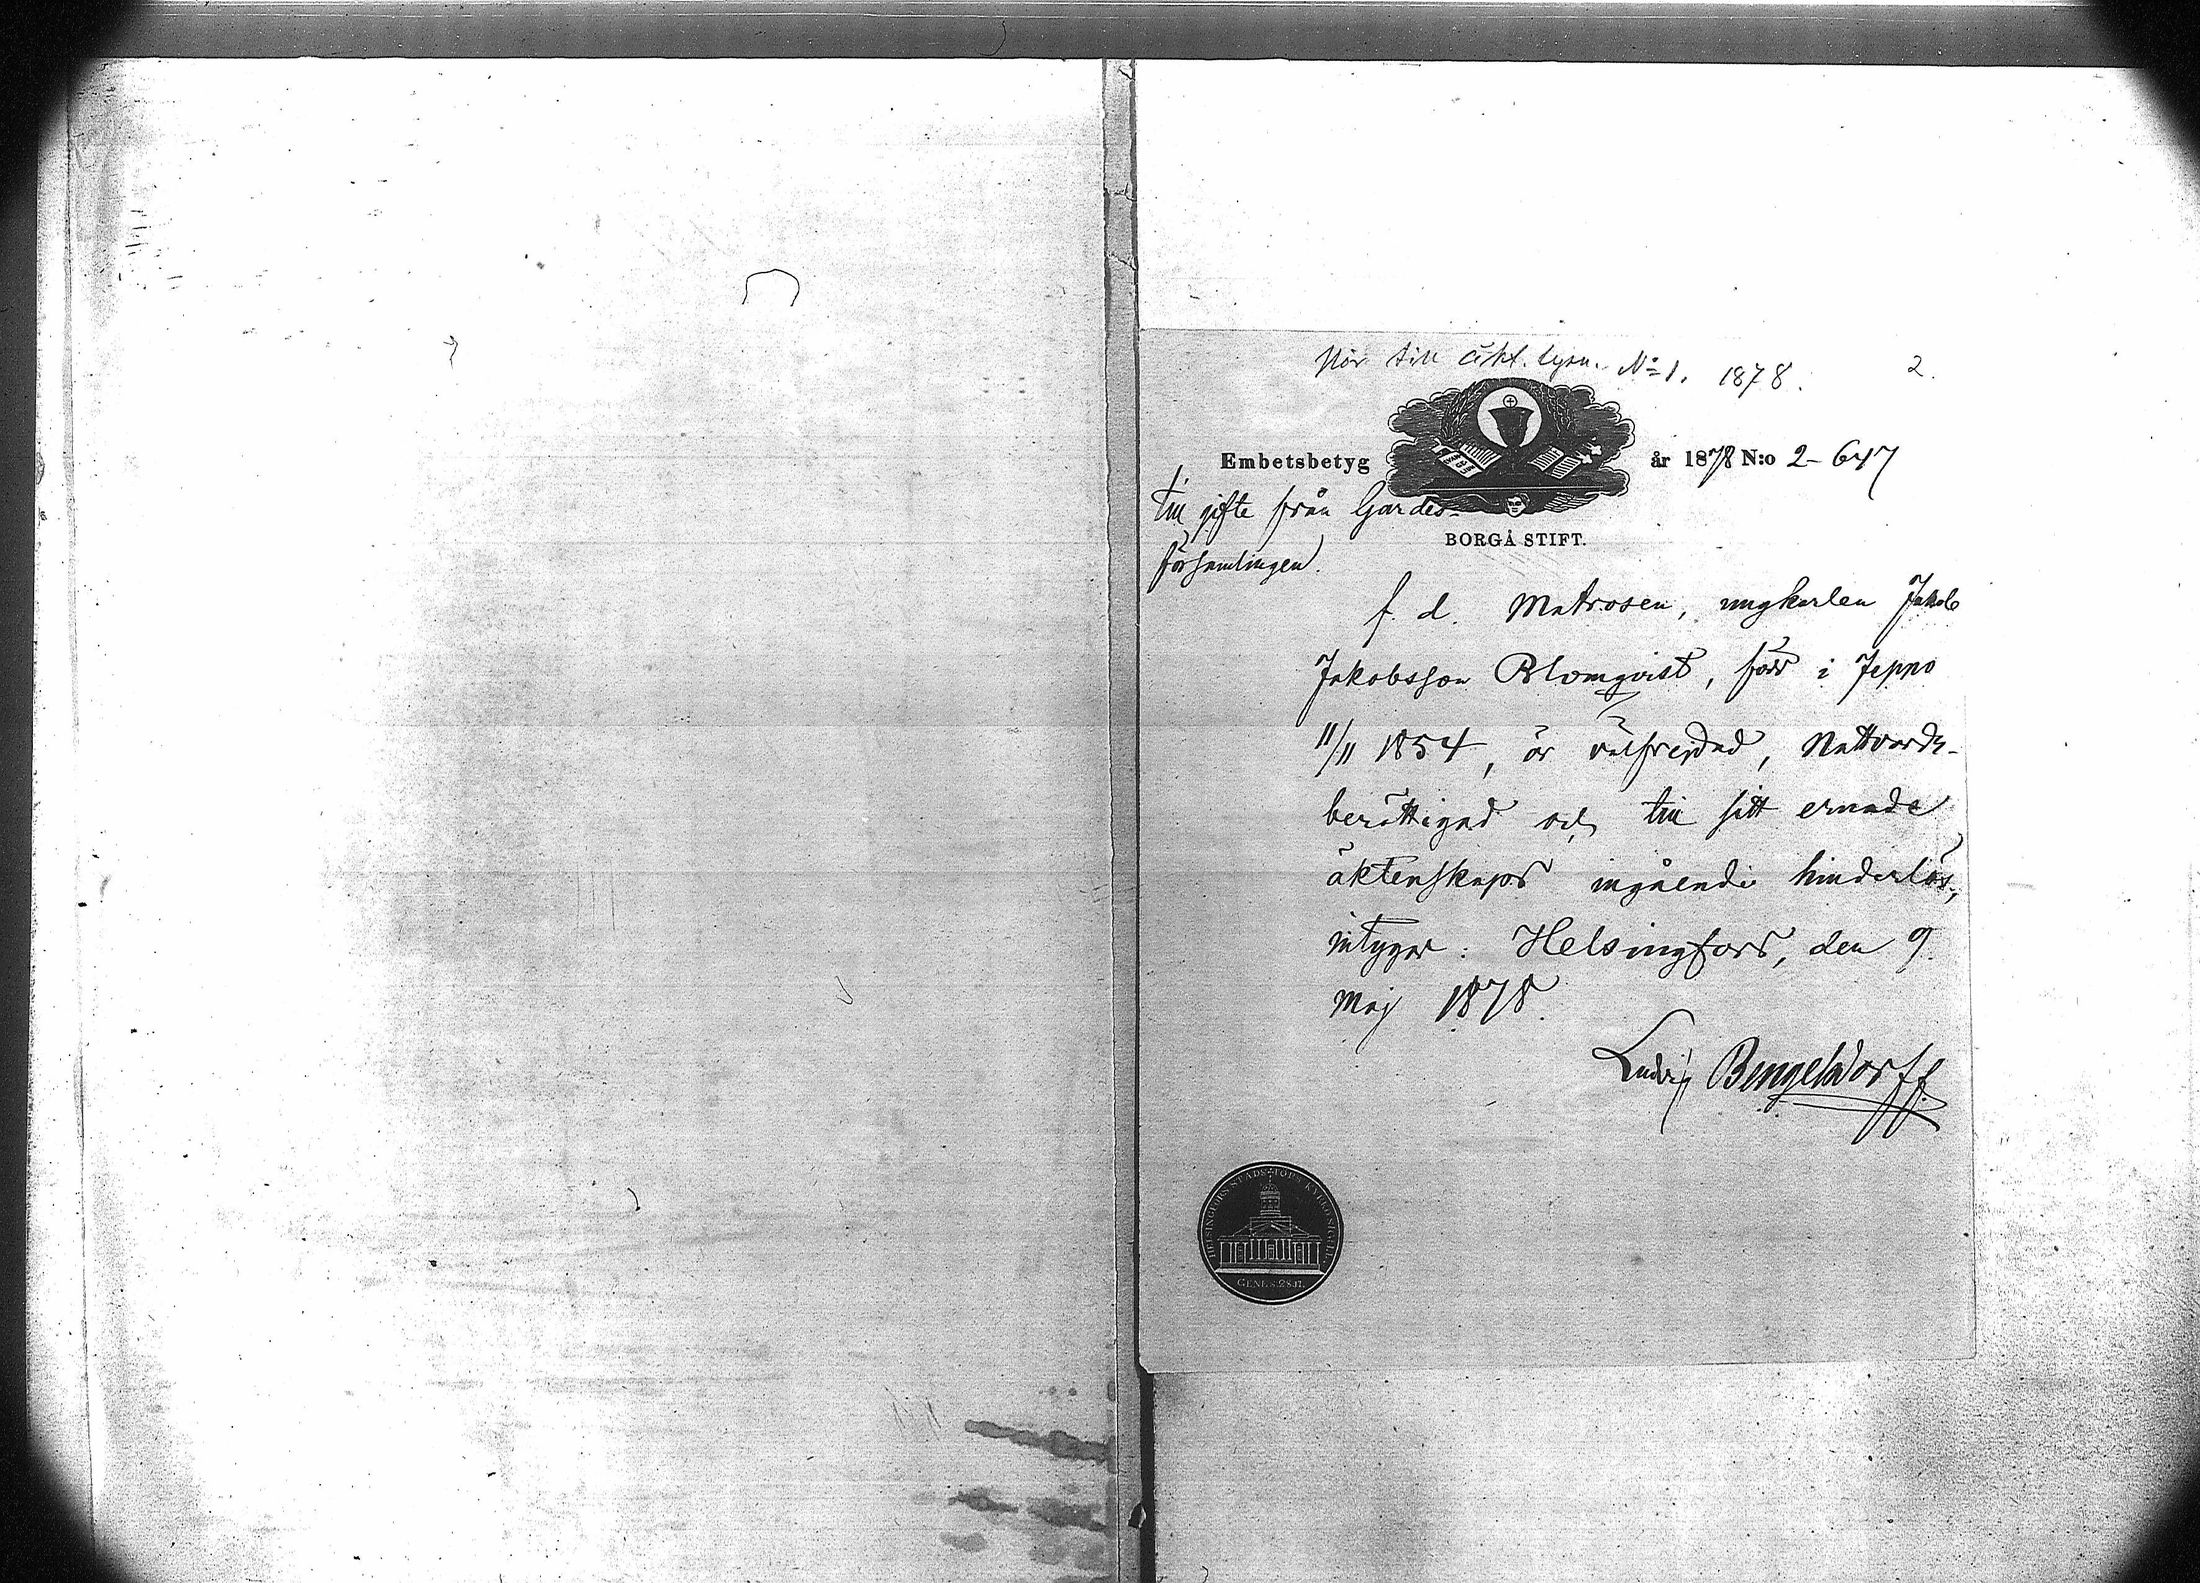 Hör till äkt. lysn. No 1. 1878. 2.
Embetsbetyg år 1878 N:o 2-647
till gifte från Gardes-
församlingen.
BORGÅ STIFT.
f. d. Matrosen, ungkarlen Jakob
Jakobsson Blomqvist, född i Jeppo
11/11 1854, är välfrejdad, Nattvards-
berättigad och till sitt ernade
äktenskaps ingående hinderlös;
intygar: Helsingfors, den 9.
Maj 1878.
Ludvig Bengelsdorff
HELSINGFORS STADS KYRKOSIGILL
GENES. 28.17.